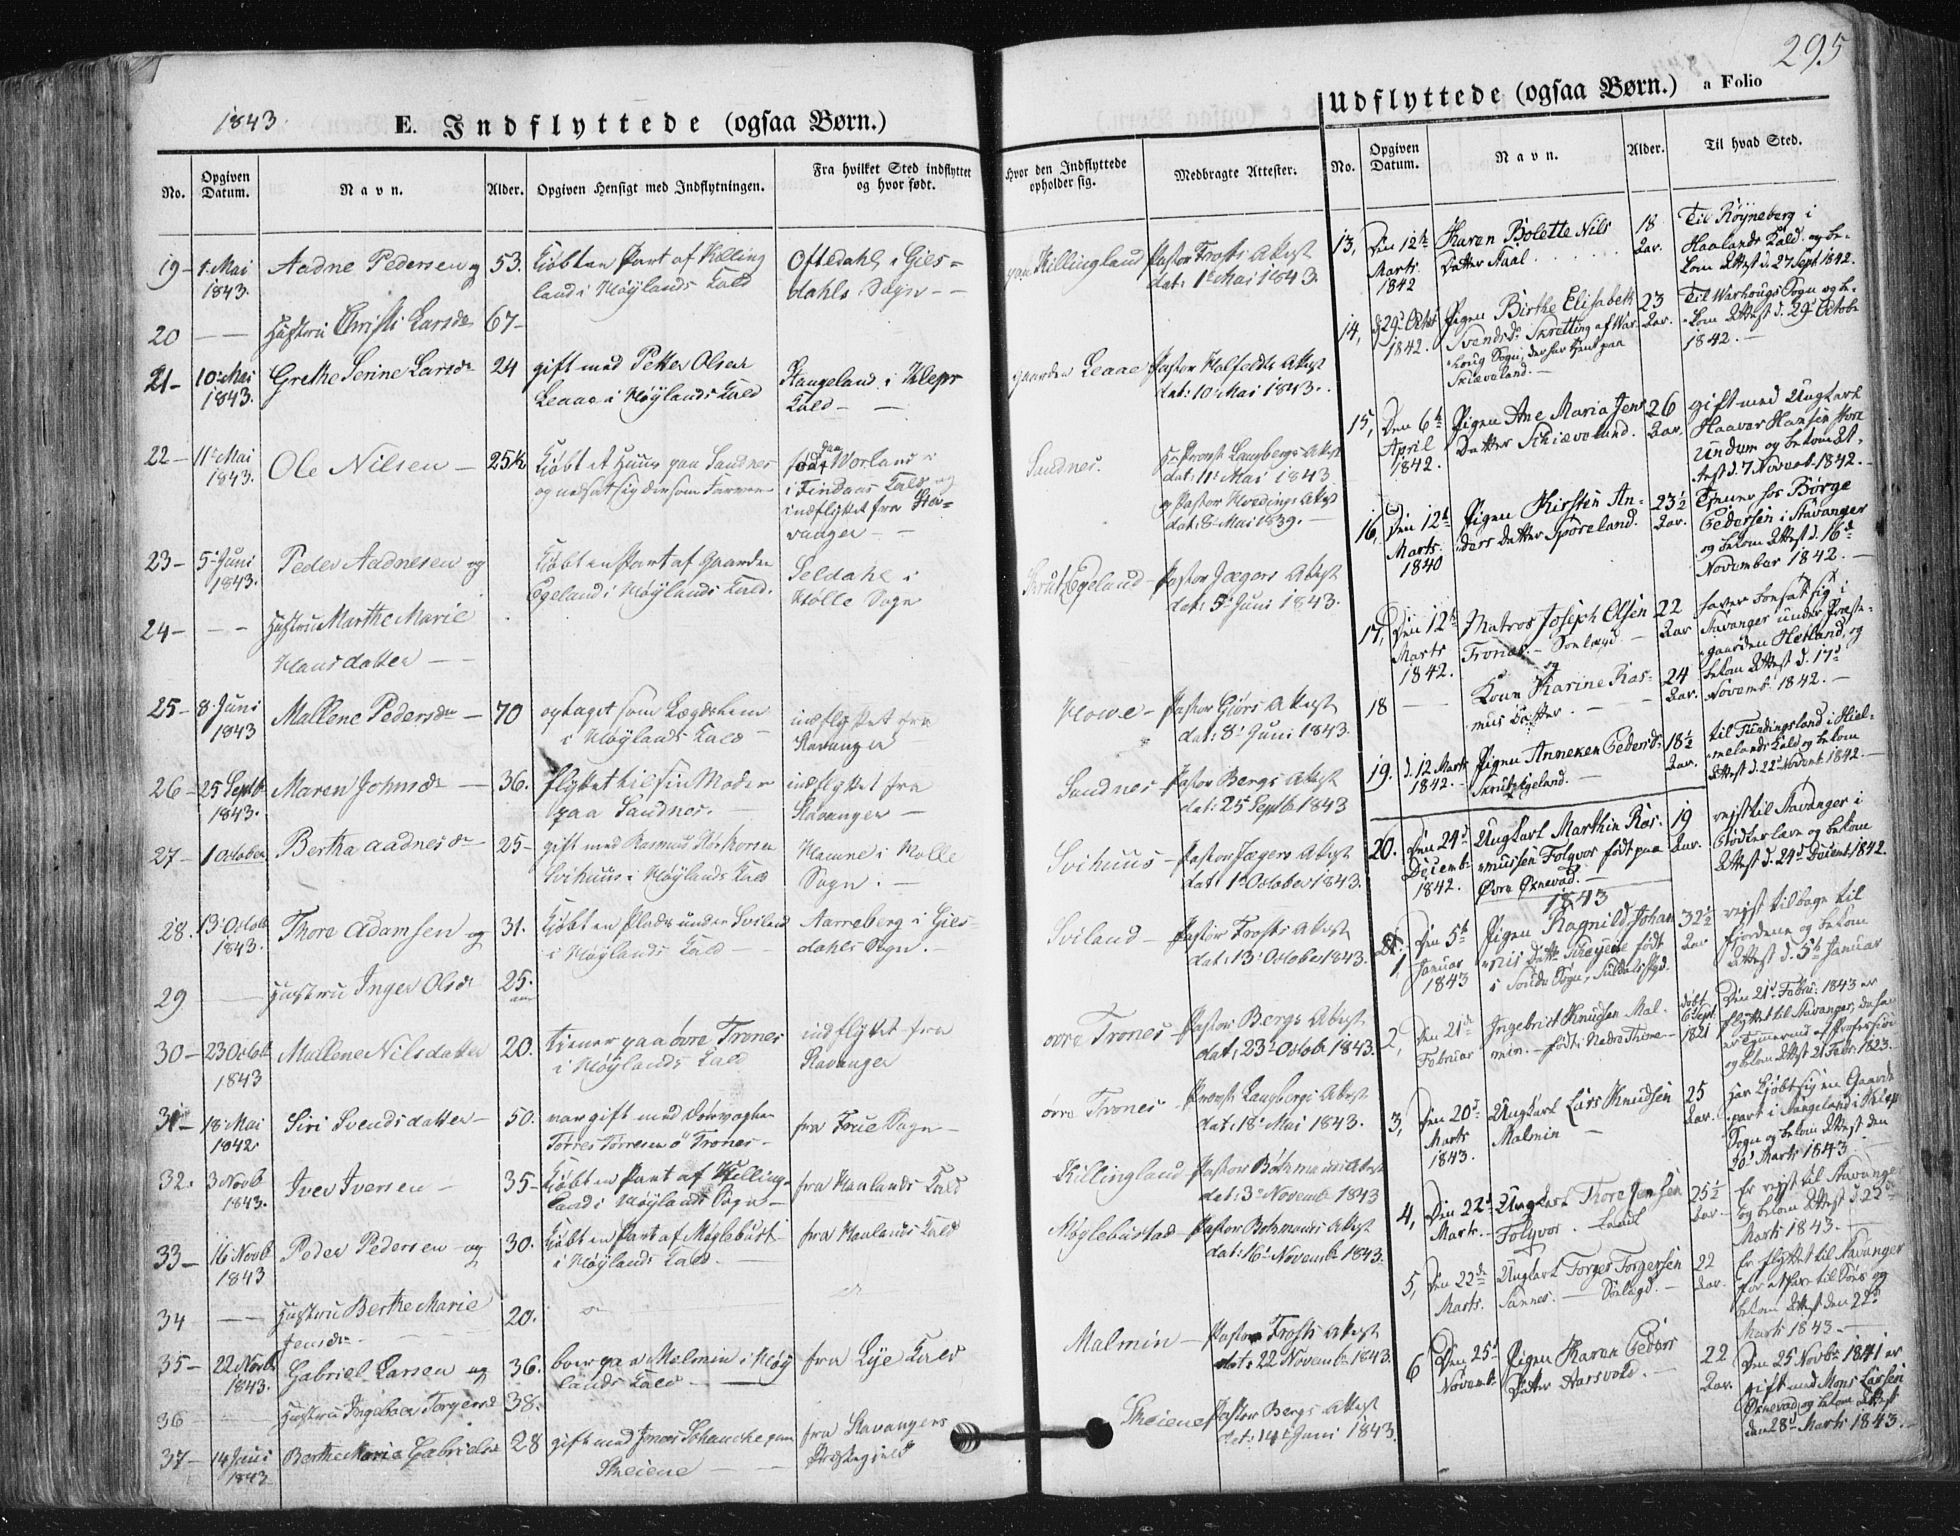 1843.
E. Indflyttede (ogsaa Børn.)
No.
Opgiven Datum.
Navn.
Alder.
Opgiven Hensigt med Indflytningen.
Fra hvilket Sted indflyttet og hvor født.
Hvor den Indflyttede opholder sig.
Medbragte Attester.
19 - 1 Mai 1843. Aadne Pedersen og 53. Kjöbt en Part af Killing land i Höylands Kald Oftedahl i Gies= dahls Sogn - - paa Killingland Pastor Frosts Attest dat: 1 Mai 1843.
20 - - Hustru Christi Larsdr 67 -
21 - 10 Mai 1843. Grethe Serine Larsdr 24 gift med Petter Olsen Leaae i Höylands Kald Stangeland i Klepp Kald - - gaarden Leaae Pastor dat: 10 Mai 1843.
22 - 11 Mai 1843. Ole Nilsen - 25½ Kjöbt et Huus paa Sandnes og nedsat sig der som Farver födt paa i Findaas Kald og indflyttet fra Sta= vanger - - Sandnes. Hr Provst Langbergs Attest dat: 11 Mai 1843 og Pastor Attest dat: 8 Mai 1839. -
23 - 5 Juni 1843. Peder Aadnesen og Kjöbt en Part af Gaarden Egeland i Höylands Kald. Seldahl i Holle Sogn Skrutzegeland - Pastor Jægers Attest dat: 5 Juni 1843.
24 - - - Hustru Marthe Marie Hansdatter - -
25 - 8 Juni 1843 Mallene Pedersdr - 70 optaget som Lægdslem i Höylands Kald indflyttet fra Stavanger Howe - Pastor Gjörs Attest dat: 8 Juni 1843.
26 - 25 Septb 1843. Maren Johnsdr - 36. flyttet til sin Moder paa Sandnes. - indflyttet fra Stavanger - Sandnes Pastor Bergs Attest dat: 25 Septb 1843
27 - 1 October Bertha Aadnesdr 25 - gift med Rasmus Svihuus i Höylands Kald Hamne i Holle Sogn. - Svihuus - Pastor Jægers Attest dat: 1 October 1843.
28. 13 Octob 1843. Thore Adamsen og 31. Kjöbt en Plads under Sviland i Höylands Kald Aarreberg i Gies= dahls Sogn. - Sviland - Pastor Frosts Attest dat: 13 October 1843.
29 - Hustru Inger Olsdr 25.
30 - 23 Octob 1843 Mallene Nilsdatter 20. tiener paa övre Trones i Höylands Kald indflyttet fra Stavanger övre Trones - Pastor Bergs Attest dat: 23 Octob 1843.
31 - 18 Mai 1842 Siri Svendsdatter - 50. var gift med Törres Törresen ö Trones - fra Frue Sogn - övre Trones - Provst Langbergs Attest dat: 18 Mai 1843.
32. 3 Novb 1843. Iver Iversen - 35 - Kjöbt en Part af Killing= land i Höylands Sogn - fra Haalands Kald Killingland Pastor Attest dat: 3 Novemb 1843
33 - 16 Novb 1843 Peder Pedersen - og 30. Kjöbt en Part af Möglebust i Höylands Kald. - fra Haalands Kald Möglebustad - Pastor Attest dat: 16 Novemb 1843.
34 - - Hustru Berthe Marie Jensdr - 20.
35 - 22 Novb 1843. Gabriel Larsen og 36. boer paa Malmin i Höy lands Kald - fra Lye Kald Malmin - Pastor Frosts Attest dat: 22 Novemb 1843.
36 - Hustru Ingeboer Torgersdr 38.
37 - 14 Juni 1843 Berthe Marie Gabrielsdr 28 gift med Jonas Schancke paa Skeiene - fra Stavangers Præstegield Skeiene Pastor Bergs Attest dat: 14 Juni 1843.
295
Udflyttede (ogsaa Børn.) a Folio
No.
Opgiven Datum.
Navn.
Alder.
Til hvad Sted.
13, Den 12te Marts 1842 Karen Bolette Nils Datter Aaal . . . . . 18 Aar. Til Röyneberg i Haalands Kald. og be= kom Attest d. 27 Sept 1842.
14, d 29 Octbr 1842. Pigen Birthe Elisabeth Svendsdr Skretting af War houg Sogn, der har tjent paa Skiæveland. - 23 Aar. Til Warhougs Sogn og be= kom Attest d. 29 Octobr 1842. -
15, Den 6te April 1842. Pigen Ane Maria Jens Datter Skiæveland. 26 Aar. gift med Ungkarl Haaver Hansen undem og bekom At= test d. 7 Novemb. 1842. -
16, Den 12te Marts. 1840 Pigen Kirstin An= ders Datter Spöreland. 23½ Aar. Tjener hos Börge Pedersen i Stavanger og bekom Attest d. 16de November 1842. -
17, Den 12te Marts 1842. Matros Joseph Olsen Trones. - Sönlægd - 22 Aar haver forsat sig i Stavanger under Præste= gaarden Hetland, og bekom Attest d. 17de Novemb. 1842. -
18 - - og Kone Karine Ras= mus Datter. - - 24 Aar.
19. d. 12 Marts 1842. - Pigen Anneken Pedersdr Skrutzegeland. - 18½ Aar. til Fundingsland i Hiel= melands Kald og bekom Attest d. 22 Novemb 1842. -
20. Den 24de Decemb. 1842. Ungkarl Marthin Ras= mussen Folyvor födt paa Övre Öxnevad. - 19 Aar. reist til Stavanger i Bödkerlære og bekom Attest d. 24de Decemb. 1842.
1843
1, Den 5te Januar 1843 Pigen Ragnild Johan nis Datter födt i Sands Sogn, Suldals 32½ Aar reist tilbage til Fjordene og bekom Attest d. 5te Januar
2, Den 21de Februar Ingebrit Knudsen Mal= min. - födt: Nedre Thime - döbt 6 Sept. 1821 Den 21 Febru: 1843 er flyttet til Stavanger, da han er Tömmermd af Profession og bekom Attest 21 Febr. 1823.
3, Den 20de Marts 1843. Ungkarl Lars Knudsen Malmin - 25 Aar. Har Kjöbt sig en Gaards part i Stangeland i Klep Sogn og bekom Attest den 20 Marts 1843 -
4, Den 22de Marts. - Ungkarl Thore Jensen Folyvor. - 25½ Aar. Er reist til Stavanger og bekom Attest d. 22de Marts 1843. -
5, Den 22de Marts. Ungkarl Torger Torgersen Sannes. - Sönlægd. - 22 Aar. Er flyttet til Stavanger for at fare til Söes og bekom Attest den 22de Marts 1843. -
6 Den 25de Novemb. Pigen Karen Peders Datter Aarsvold. - 22 Aar. Den 25 Novbr 1841 er gift med Mons Larsen Öxnevad og bekom Attest den 28 Marts 1843.